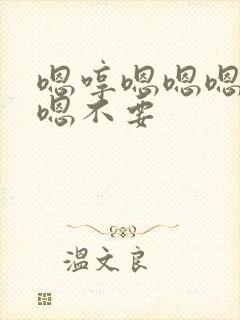 嗯哼嗯嗯嗯
嗯不要
温文良